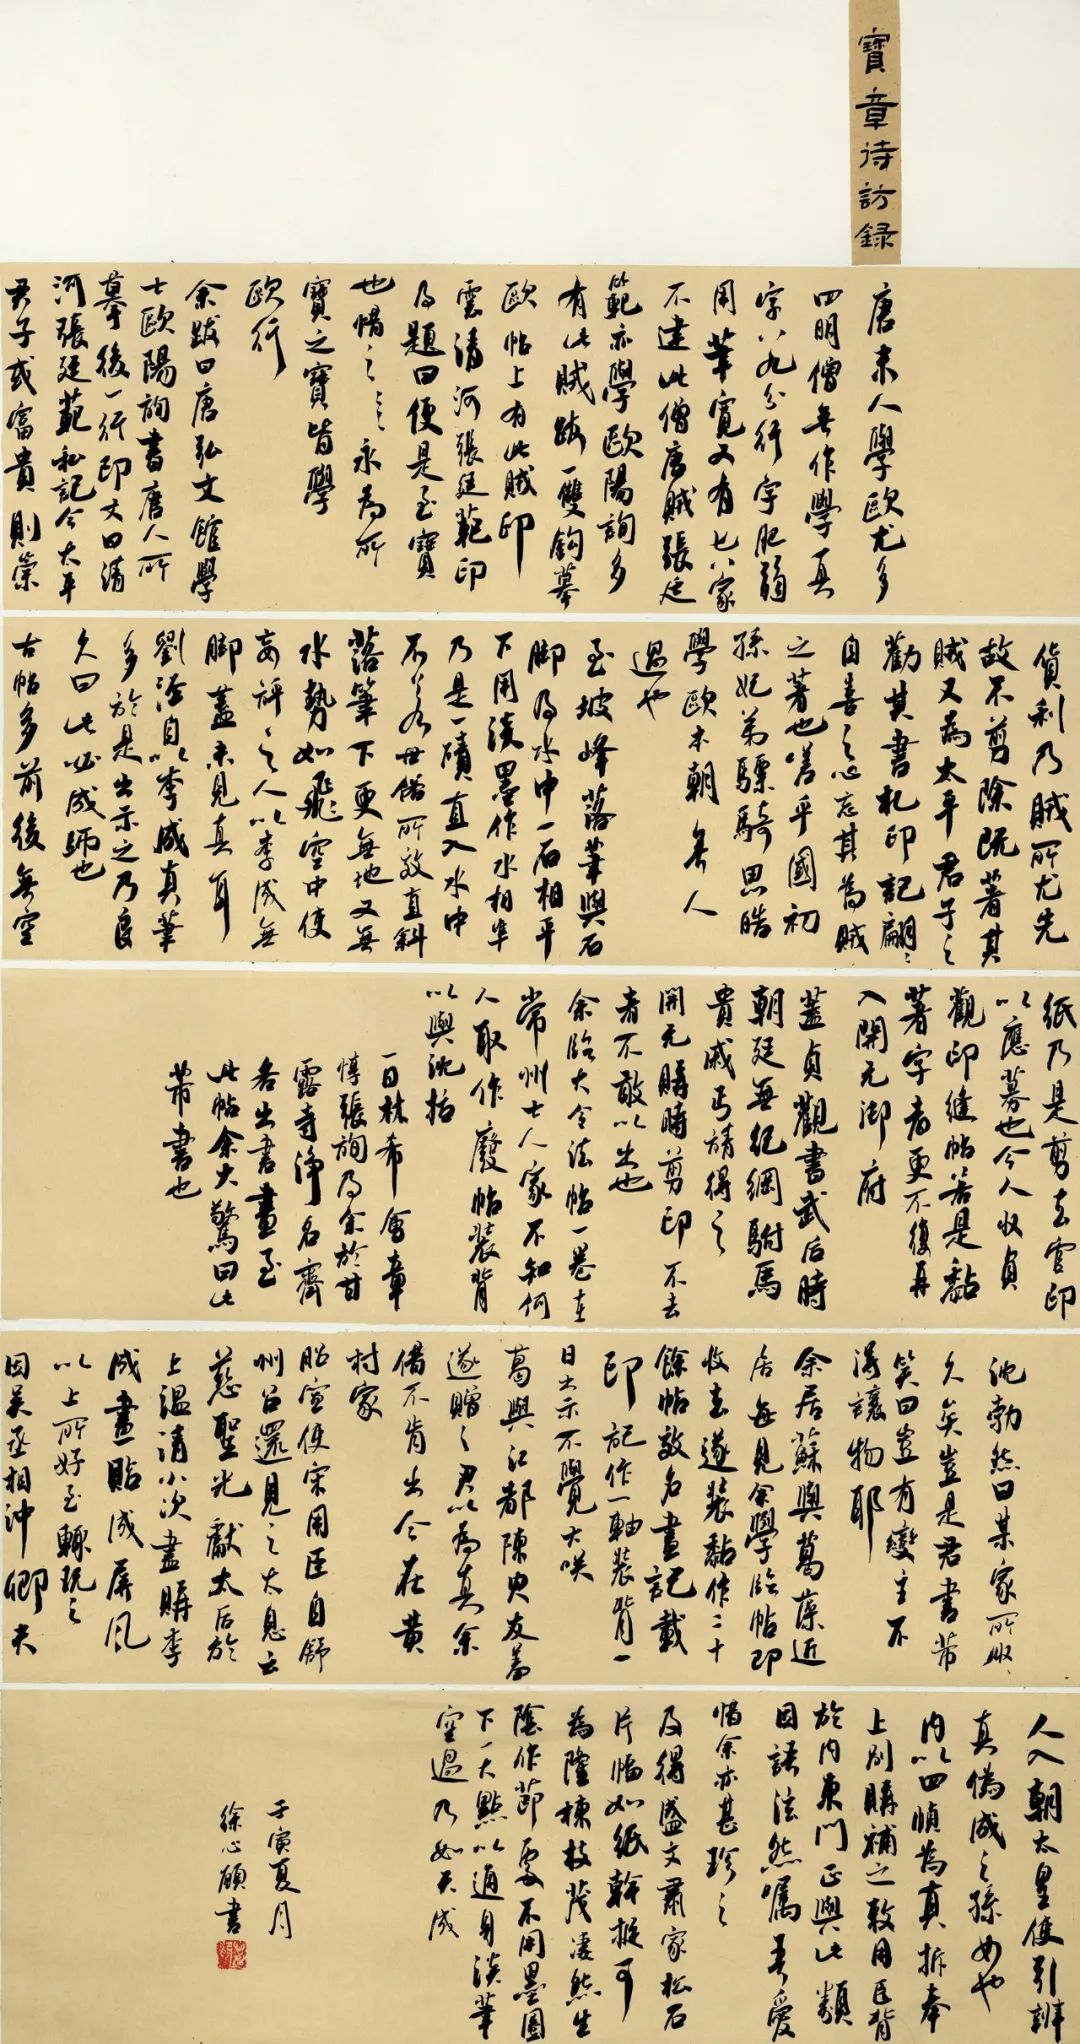 寶章待訪録
唐末人學歐尤多
四明僧無作學真
字八九分行字肥弱
用筆寬又有七八家
不逮此僧唐賊張廷
範亦學歐陽詢多
有此賊跋一雙鈎摹
歐帖上有此賊印
雲清河張廷範印
及題曰便是至寶
也惜之惜之永為所
寶之寶皆學
歐行
余跋曰唐弘文館學
士歐陽詢書唐人所
摹後一行印文曰清
河張廷範私記今太平
君子或富貴則榮
貨利乃賊所尤先
故不剪除既著其
賊又為太平君子之
勸其書札印記翩翩
自喜之心忘其為賊
之著也嗟乎國初
孫妃弟驃騎思皓
學歐本朝無人
過也
至坡峰落筆與石
脚及水中一石相平
下用淡墨作水相準
乃是一磧直入水中
不若世俗所效直斜
落筆下更無地又無
水勢如飛空中使
妄評之人以李成無
脚蓋未見真耳
劉涇自以李成真筆
多於是出示之乃良
久曰此必成師也
古帖多前後無空
紙乃是剪去官印
以應募也今人收貞
觀印縫帖若是黏
著字者更不復再
入開元御府
蓋貞觀書武后時
朝廷無紀綱駙馬
貴戚丐請得之
開元購時剪印不去
者不敢以出也
余臨大令法帖一卷在
常州士人家不知何
人取作廢帖裝背
以與沈括
一日林希會章
惇張詢及余於甘
露寺淨名齋
各出書畫至
此帖余大驚曰此
芾書也
沈勃然曰某家所收
久矣豈是君書芾
笑曰豈有變主不
得讓物耶
余居蘇與葛藻近
居每見余學臨帖即
收去遂裝黏作二十
餘帖效名畫記載
印記作一軸裝背一
日出示不覺大咲
葛與江都陳臾友善
遂贈之君以為真余
借不肯出今在黄
村家
貽宣使宋用臣自舒
州召還見之太息云
慈聖光獻太后於
上温清小次盡購李
成畫貼成屏風
以上所好至輒玩之
因吳丞相沖卿夫
人入朝太皇使引辨
真偽成之孫女也
内以四幀為真拆奉
上別購補之敕用臣背
於内東門正與此類
因語泫然囑吾愛
惜余亦甚珍之
及得盛文肅家松石
片幅如紙幹挺可
為隆棟枝茂淒然生
陰作節處不用墨圈
下一大點以通身淡筆
空過乃如天成
壬寅夏月
徐心願書